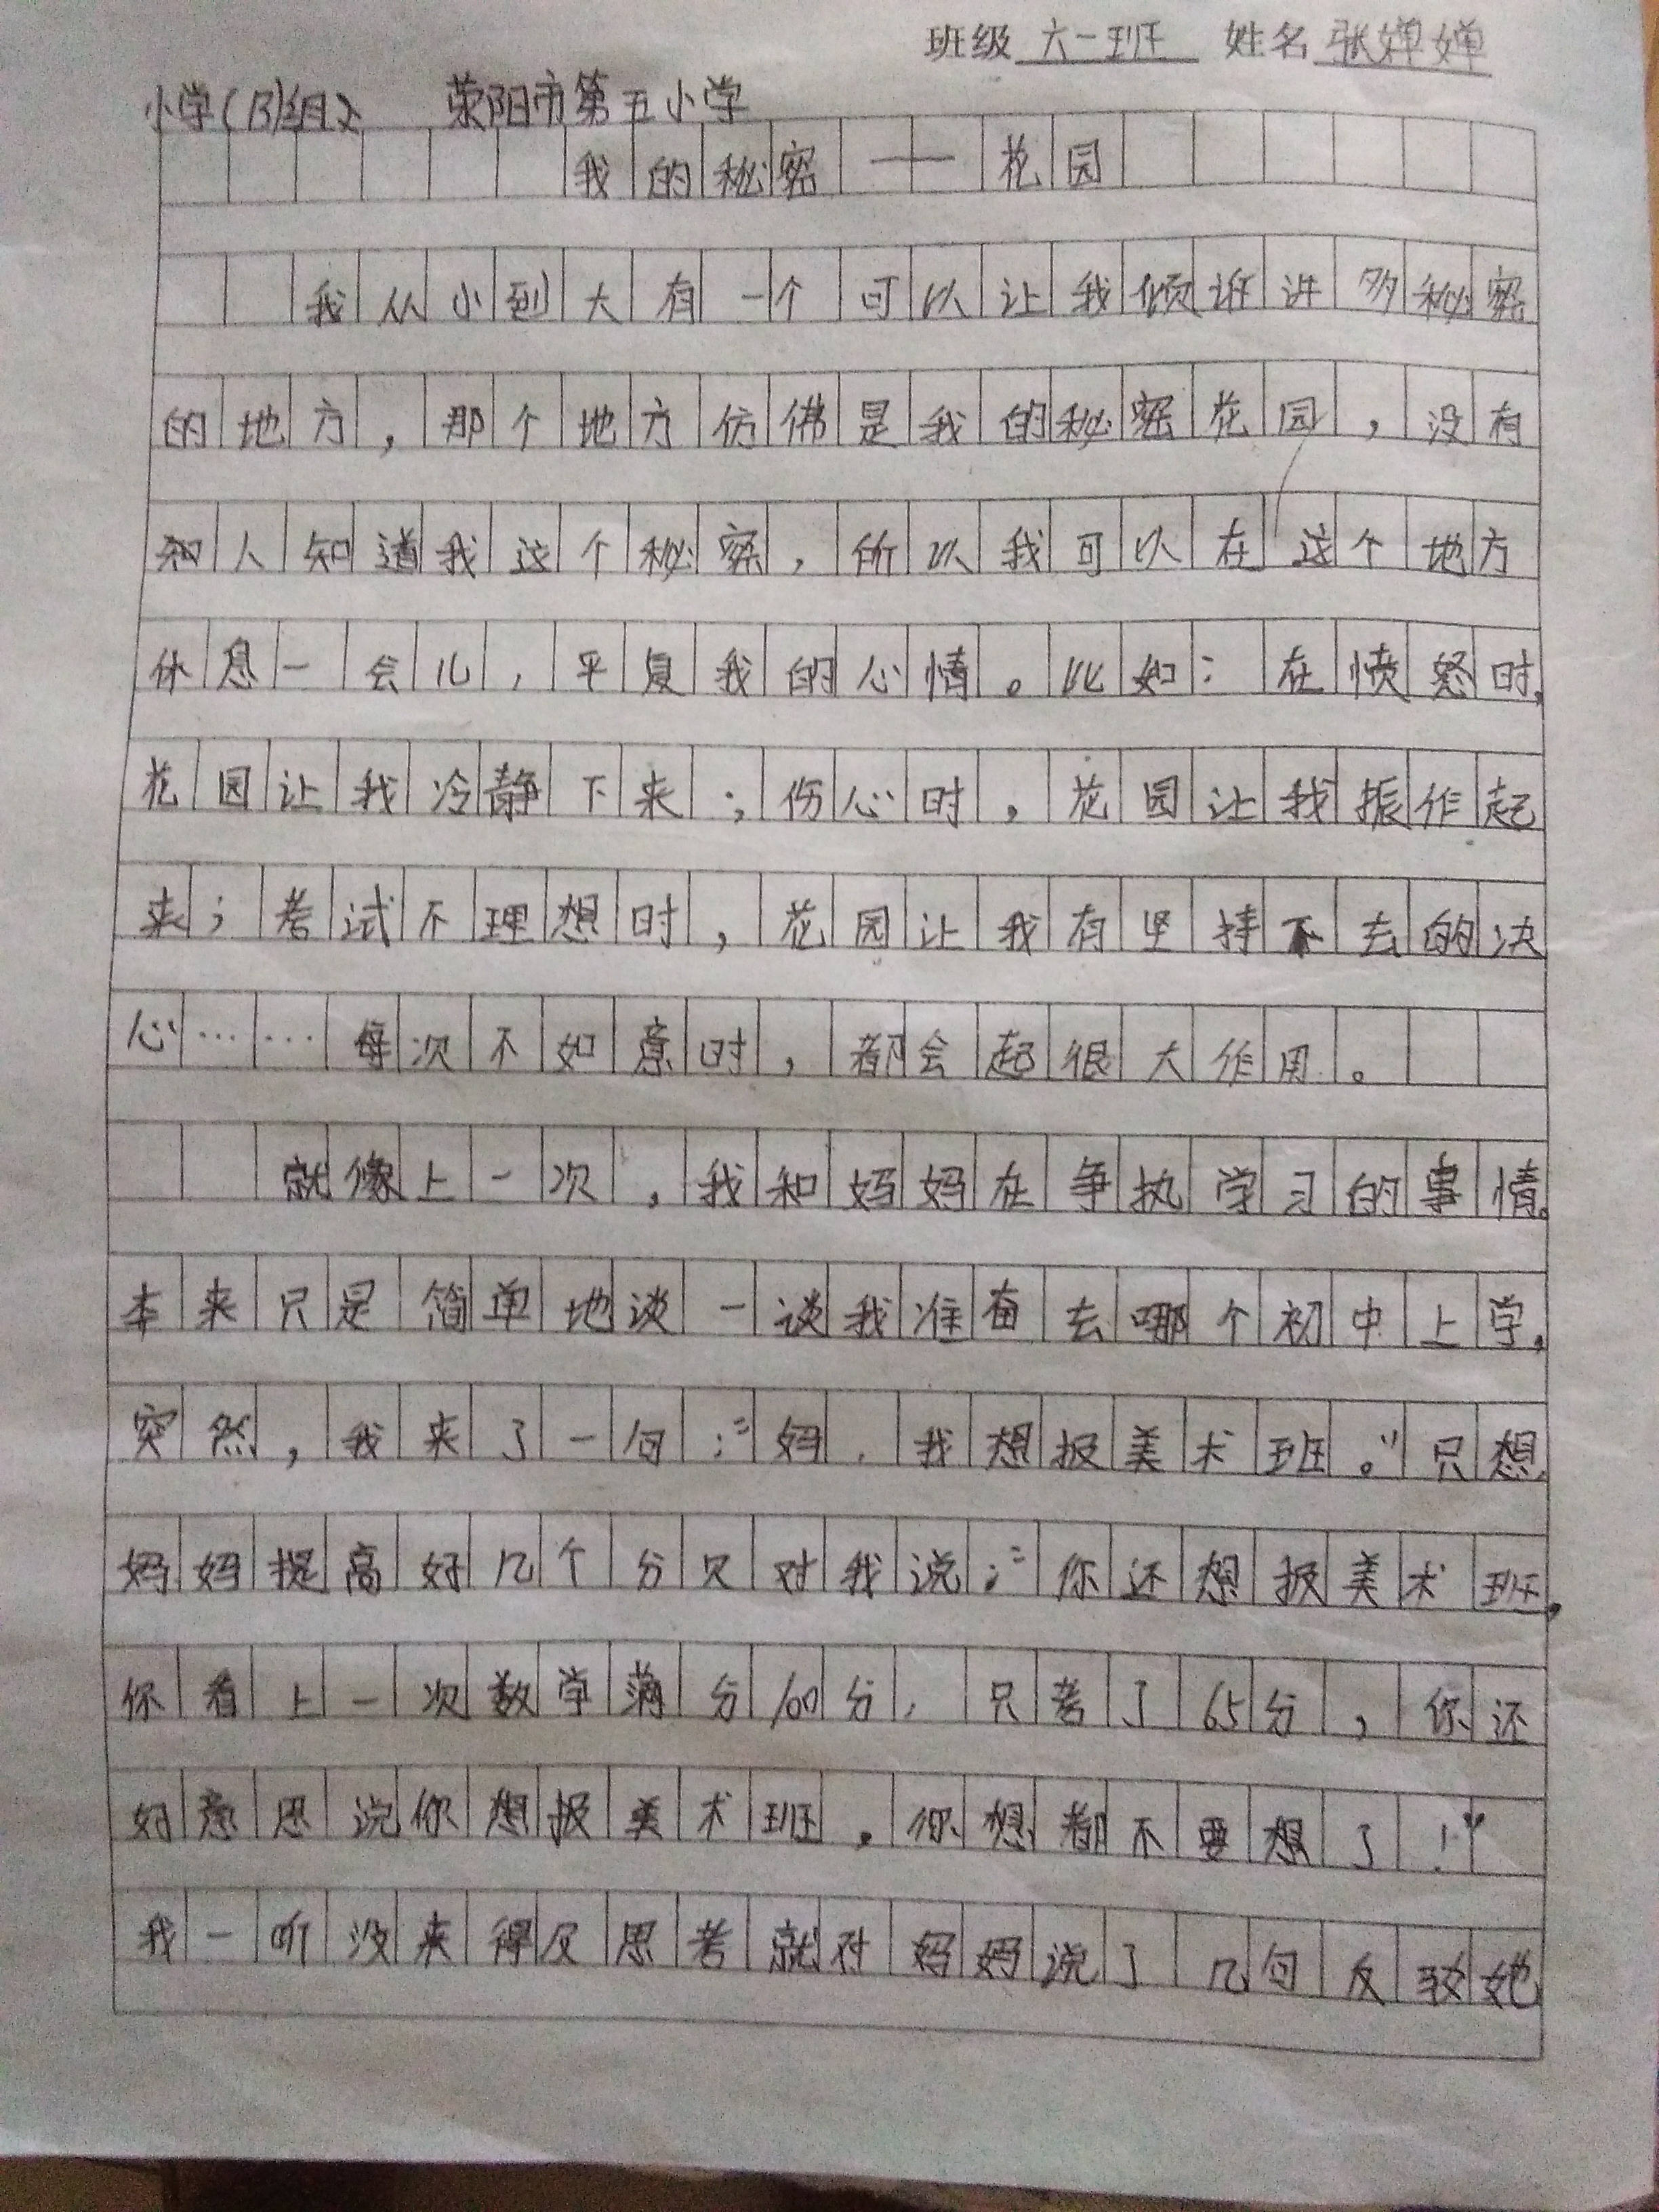 班级 六一班 姓名 张婵婵
小学(B)组 荥阳市第五小学
我的秘密——花园
我从小到大有一个可以让我倾诉许多秘密
的地方，那个地方仿佛是我的秘密花园，没有
人知道我这个秘密，所以我可以在这个地方
休息一会儿，平复我的心情。比如：在愤怒时，
花园让我冷静下来；伤心时，花园让我振作起
来；考试不理想时，花园让我有坚持下去的决
心……每次不如意时，都会起很大作用。
就像上一次，我和妈妈在争执学习的事情。
本来只是简单地谈一谈我准备去哪个初中上学，
突然，我来了一句：“妈，我想报美术班。”只想
妈妈提高好几个分贝对我说：“你还想报美术班，
你看上一次数学满分100分，只考了65分，你还
好意思说你想报美术班。你想都不要想了！”
我一听没来得及思考就对妈妈说了几句反驳她